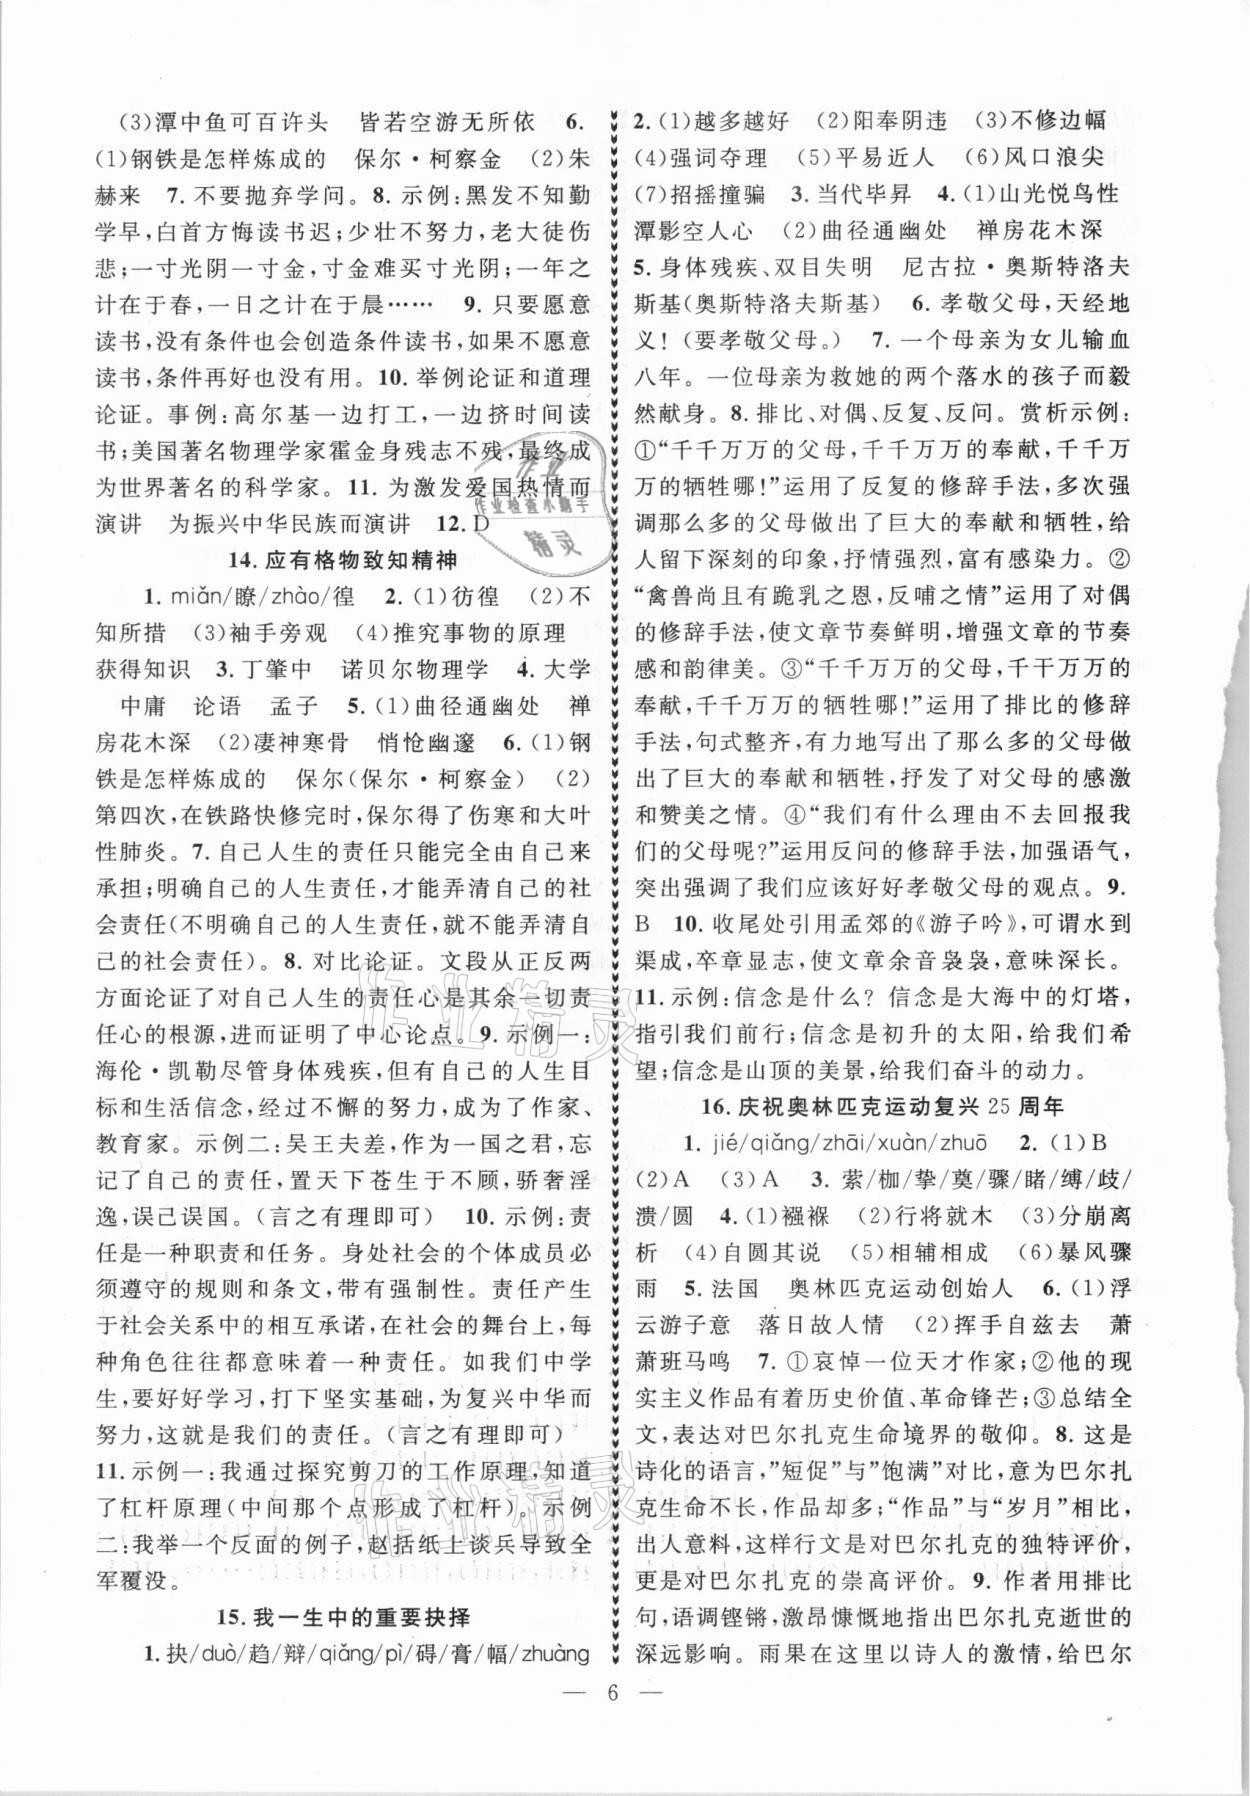 (3)潭中鱼可百许头　皆若空游无所依　6.
(1)钢铁是怎样炼成的　保尔·柯察金　(2)朱
赫来　7. 不要抛弃学问。 8. 示例:黑发不知勤
学早,白首方悔读书迟;少壮不努力,老大徒伤
悲;一寸光阴一寸金,寸金难买寸光阴;一年之
计在于春,一日之计在于晨……　9. 只要愿意
读书,没有条件也会创造条件读书,如果不愿意
读书,条件再好也没有用。10. 举例论证和道理
论证。事例:高尔基一边打工,一边挤时间读
书;美国著名物理学家霍金身残志不残,最终成
为世界著名的科学家。11. 为激发爱国热情而
演讲　为振兴中华民族而演讲　12.D
14. 应有格物致知精神
1. miǎn/瞭/zhào/徨　2. (1)彷徨　(2)不
知所措　(3)袖手旁观　(4)推究事物的原理
获得知识　3. 丁肇中　诺贝尔物理学　4. 大学
中庸　论语　孟子　5. (1)曲径通幽处　禅
房花木深　(2)凄神寒骨　悄怆幽邃　6. (1)钢
铁是怎样炼成的　保尔(保尔·柯察金)　(2)
第四次,在铁路快修完时,保尔得了伤寒和大叶
性肺炎。7. 自己人生的责任只能完全由自己来
承担;明确自己的人生责任,才能弄清自己的社
会责任(不明确自己的人生责任,就不能弄清自
己的社会责任)。8. 对比论证。文段从正反两
方面论证了对自己人生的责任心是其余一切责
任心的根源,进而证明了中心论点。9. 示例一:
海伦·凯勒尽管身体残疾,但有自己的人生目
标和生活信念,经过不懈的努力,成了作家、
教育家。示例二:吴王夫差,作为一国之君,忘
记了自己的责任,置天下苍生于不顾,骄奢淫
逸,误己误国。(言之有理即可)　10. 示例:责
任是一种职责和任务。身处社会的个体成员必
须遵守的规则和条文,带有强制性。责任产生
于社会关系中的相互承诺,在社会的舞台上,每
种角色往往都意味着一种责任。如我们中学
生,要好好学习,打下坚实基础,为复兴中华而
努力,这就是我们的责任。(言之有理即可)
11. 示例一:我通过探究剪刀的工作原理,知道
了杠杆原理(中间那个点形成了杠杆)。示例
二:我举一个反面的例子,赵括纸上谈兵导致全
军覆没。
15. 我一生中的重要抉择
1. 抉/duò/趋/辩/qiǎng/pì/碍/膏/幅/zhuàng
2. (1)越多越好　(2)阳奉阴违　(3)不修边幅
(4)强词夺理　(5)平易近人　(6)风口浪尖
(7)招摇撞骗　3. 当代毕昇　4. (1)山光悦鸟性
潭影空人心　(2)曲径通幽处　禅房花木深
5. 身体残疾、双目失明　尼古拉·奥斯特洛夫
斯基(奥斯特洛夫斯基)　6. 孝敬父母,天经地
义!(要孝敬父母。)　7. 一个母亲为女儿输血
八年。一位母亲为救她的两个落水的孩子而毅
然献身。8. 排比、对偶、反复、反问。赏析示例:
①“千千万万的父母,千千万万的奉献,千千万
万的牺牲哪!”运用了反复的修辞手法,多次强
调那么多的父母做出了巨大的奉献和牺牲,给
人留下深刻的印象,抒情强烈,富有感染力。②
“禽兽尚且有跪乳之恩,反哺之情”运用了对偶
的修辞手法,使文章节奏鲜明,增强文章的节奏
感和韵律美。③“千千万万的父母,千千万万的
奉献,千千万万的牺牲哪!”运用了排比的修辞
手法,句式整齐,有力地写出了那么多的父母做
出了巨大的奉献和牺牲,抒发了对父母的感激
和赞美之情。④“我们有什么理由不去回报我
们的父母呢?”运用反问的修辞手法,加强语气,
突出强调了我们应该好好孝敬父母的观点。9.
B　10. 收尾处引用孟郊的《游子吟》,可谓水到
渠成,卒章显志,使文章余音袅袅,意味深长。
11. 示例:信念是什么? 信念是大海中的灯塔,
指引我们前行;信念是初升的太阳,给我们希
望;信念是山顶的美景,给我们奋斗的动力。
16. 庆祝奥林匹克运动复兴 25 周年
1. jié/qiǎng/zhāi/xuàn/zhuō　2. (1)B
(2)A　(3)A　3. 萦/枷/挚/奠/骤/睹/缚/歧/
溃/圆　4. (1)襁褓　(2)行将就木　(3)分崩离
析　(4)自圆其说　(5)相辅相成　(6)暴风骤
雨　5. 法国　奥林匹克运动创始人　6. (1)浮
云游子意　落日故人情　(2)挥手自兹去　萧
萧班马鸣　7. ①哀悼一位天才作家;②他的现
实主义作品有着历史价值、革命锋芒;③总结全
文,表达对巴尔扎克生命境界的敬仰。8. 这是
诗化的语言,”短促”与”饱满”对比,意为巴尔扎
克生命不长,作品却多;“作品”与“岁月”相比,
出人意料,这样行文是对巴尔扎克的独特评价,
更是对巴尔扎克的崇高评价。9. 作者用排比
句,语调铿锵,激昂慷慨地指出巴尔扎克逝世的
深远影响。雨果在这里以诗人的激情,给巴尔
— 6 —
作业
作业检查小助手
精灵
作业精灵
作业精灵